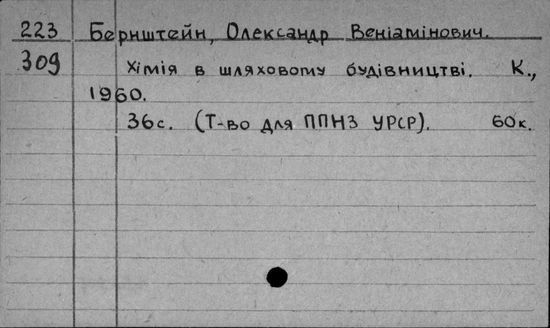 223 Бернштейн, Олександр Веніамінович.
309 Хімія в шляховому будівництві. К.,
1960.
36с. (Т-во для ППНЗ УРСР). 60к.